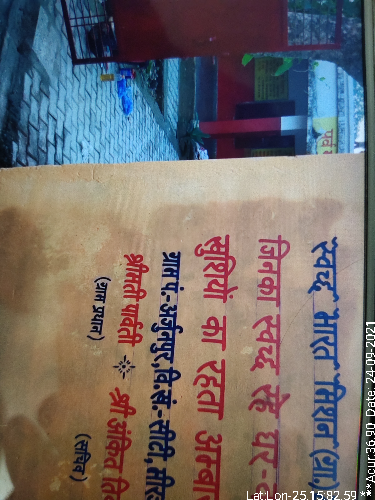 स्वच्छ भारत मिशन (ग्रा)
जिनका स्वच्छ रहे घर-
खुशियों का रहता अम्बा
ग्राम पं.-अर्जुनपुर, वि.खं.-सीटी,
श्रीमती पार्वती श्री अंकित
(ग्राम प्रधान) (सचिव)
Lat:Lon-25.15:82.59
***Acur:36.90 Date: 24-09-2021